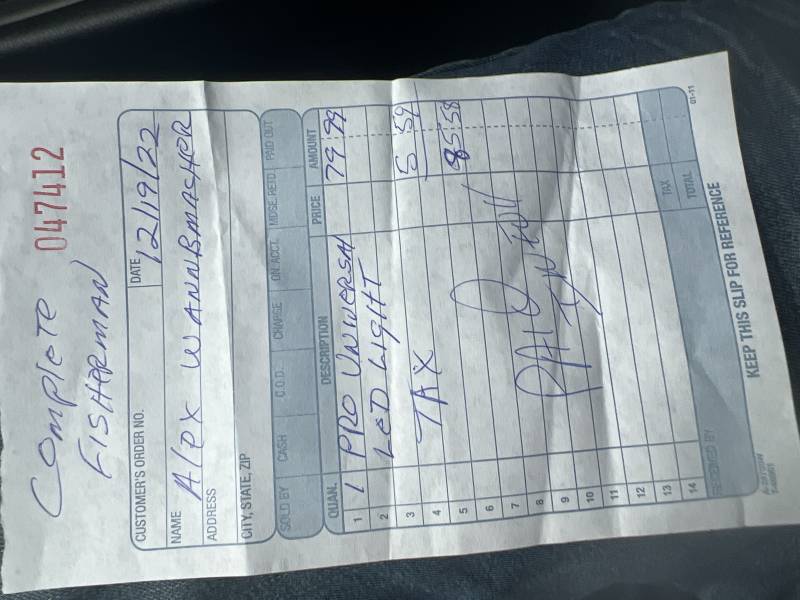 COMPLETE
FISHERMAN
047412
CUSTOMER'S ORDER NO.
DATE 12/19/22
NAME Alex WANNBMACHER
ADDRESS
CITY, STATE, ZIP
SOLD BY CASH C.O.D. CHARGE ON ACCT. MDSE. RETD. PAID OUT
QUAN. DESCRIPTION PRICE AMOUNT
1 1 PRO UNIVERSAL 79 99
2 LED LIGHT
3 5 59
4 TAX
5 85.58
6
7 PAID
8 IN FULL
9
10
11
12
13 TAX
14 TOTAL
RECEIVED BY
KEEP THIS SLIP FOR REFERENCE
01-11